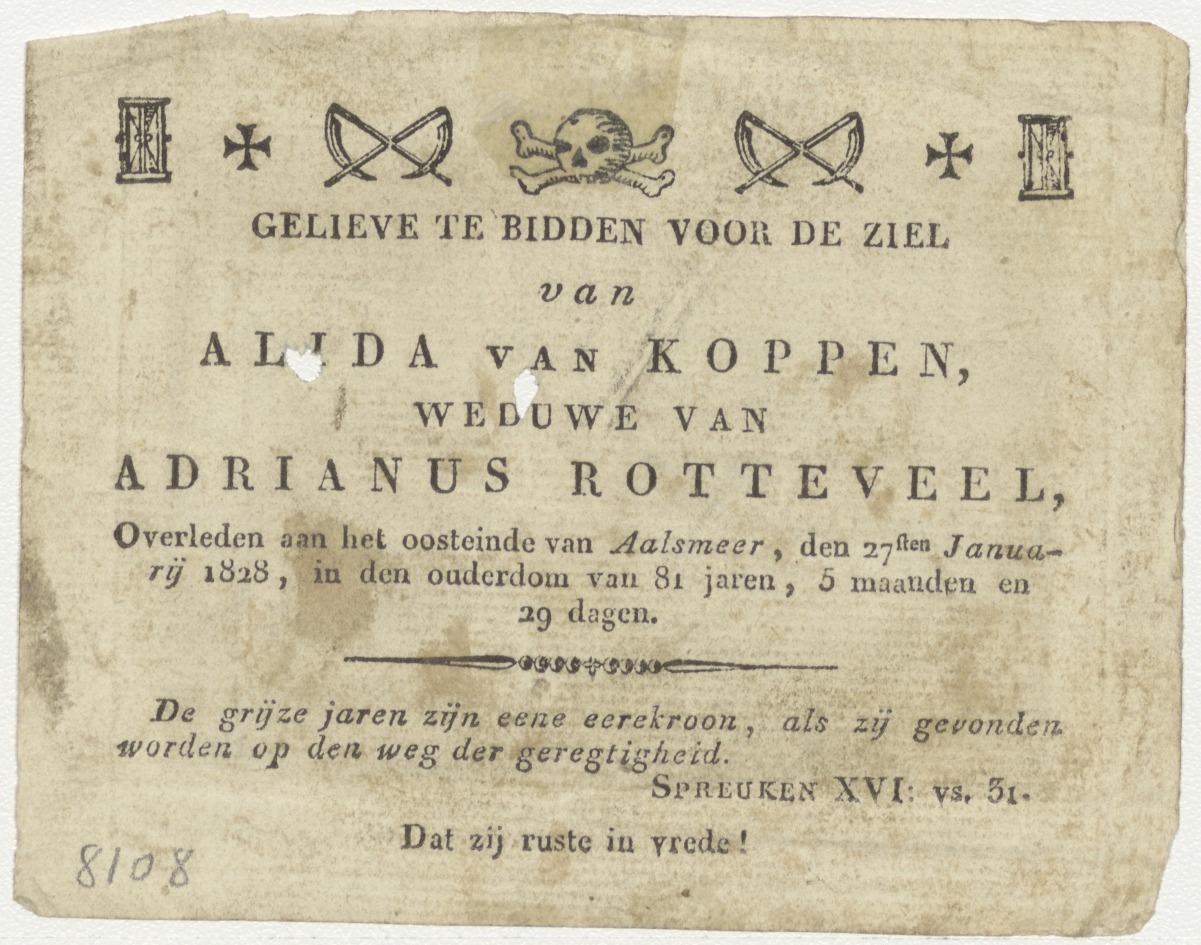 GELIEVE TE BIDDEN VOOR DE ZIEL
van
ALIDA VAN KOPPEN,
WEDUWE VAN
ADRIANUS ROTTEVEEL,
Overleden aan het oosteinde van Aalsmeer, den 27sten Janua-
rij 1828, in den ouderdom van 81 jaren, 5 maanden en
29 dagen.
De grijze jaren zijn eene eerekroon, als zij gevonden
worden op den weg der geregtigheid.
SPREUKEN XVI: vs. 31.
Dat zij ruste in vrede!
8108